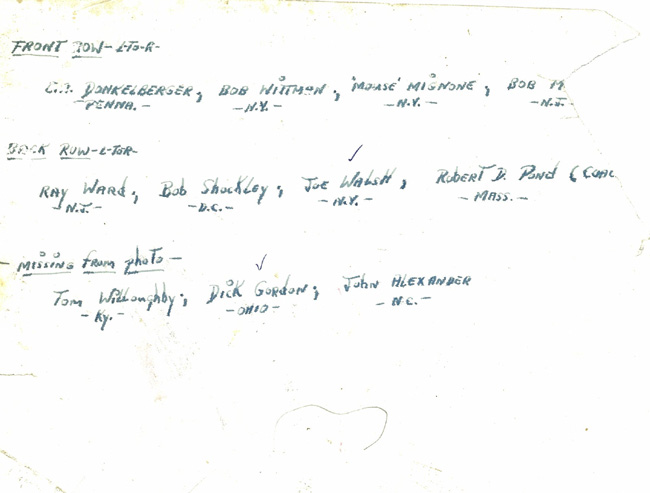 FRONT ROW-L-TO-R-
DONKELBERGER; BOB WITTMAN; 'MOUSE' MIGNONE; BOB
PENNA.- -N.Y.- -N.Y.- -N.J.-
BACK ROW-L-TOR-
RAY WARD; Bob Shockley; JOE WALSH; ROBERT D. POND (COAC
-N.J.- -D.C.- -N.Y.- -MASS.-
-MISSING from photo-
Tom Willoughby; DICK GORDON; JOHN ALEXANDER
-Ky.- -OHIO- -N.C.-